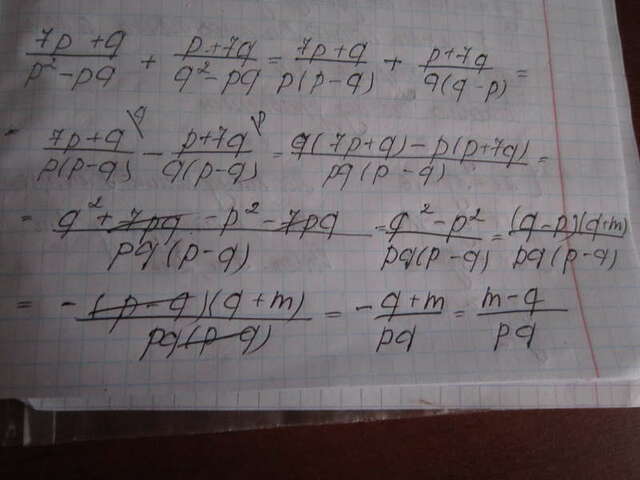 (7p+q)/(p²-pq) + (p+7q)/(q²-pq) = (7p+q)/(p(p-q)) + (p+7q)/(q(q-p)) =
= (7p+q)/(p(p-q)) \q - (p+7q)/(q(p-q)) \p = (q(7p+q)-p(p+7q))/(pq(p-q)) =
= (q²+7pq-p²-7pq)/(pq(p-q)) = (q²-p²)/(pq(p-q)) = ((q-p)(q+m))/(pq(p-q))
= -((p-q)(q+m))/(pq(p-q)) = -(q+m)/(pq) = (m-q)/(pq)